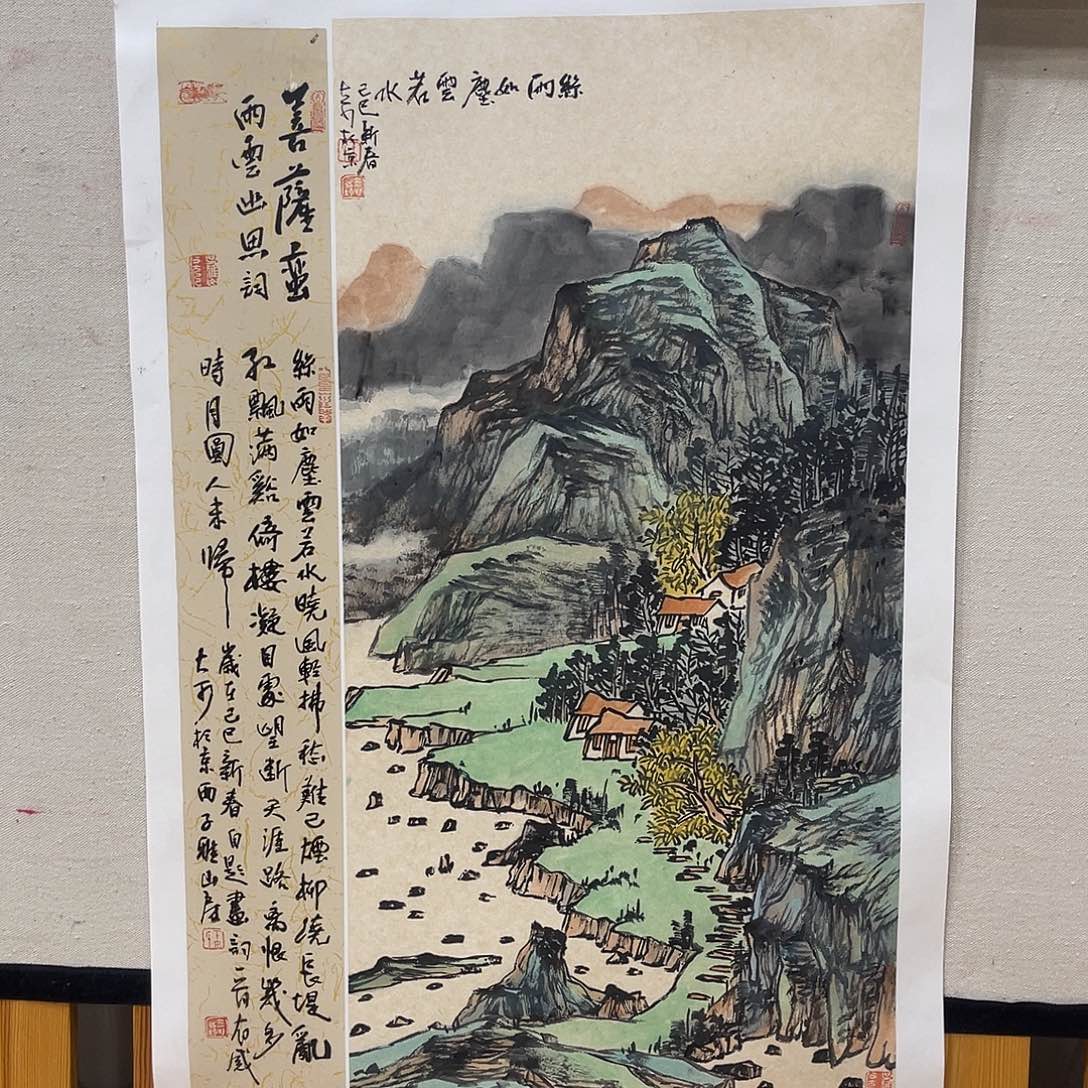 絲雨如塵雲若水
己巳新春
大可於京
菩薩蠻
雨雲幽思詞
絲雨如塵雲若水曉風輕拂愁難已煙柳繞長堤亂
紅飄滿谿倚樓凝目處望斷天涯路離恨幾多
時月圓人未歸
歲在己巳新春自題畫詞一首有感
大可於京西子雅山房